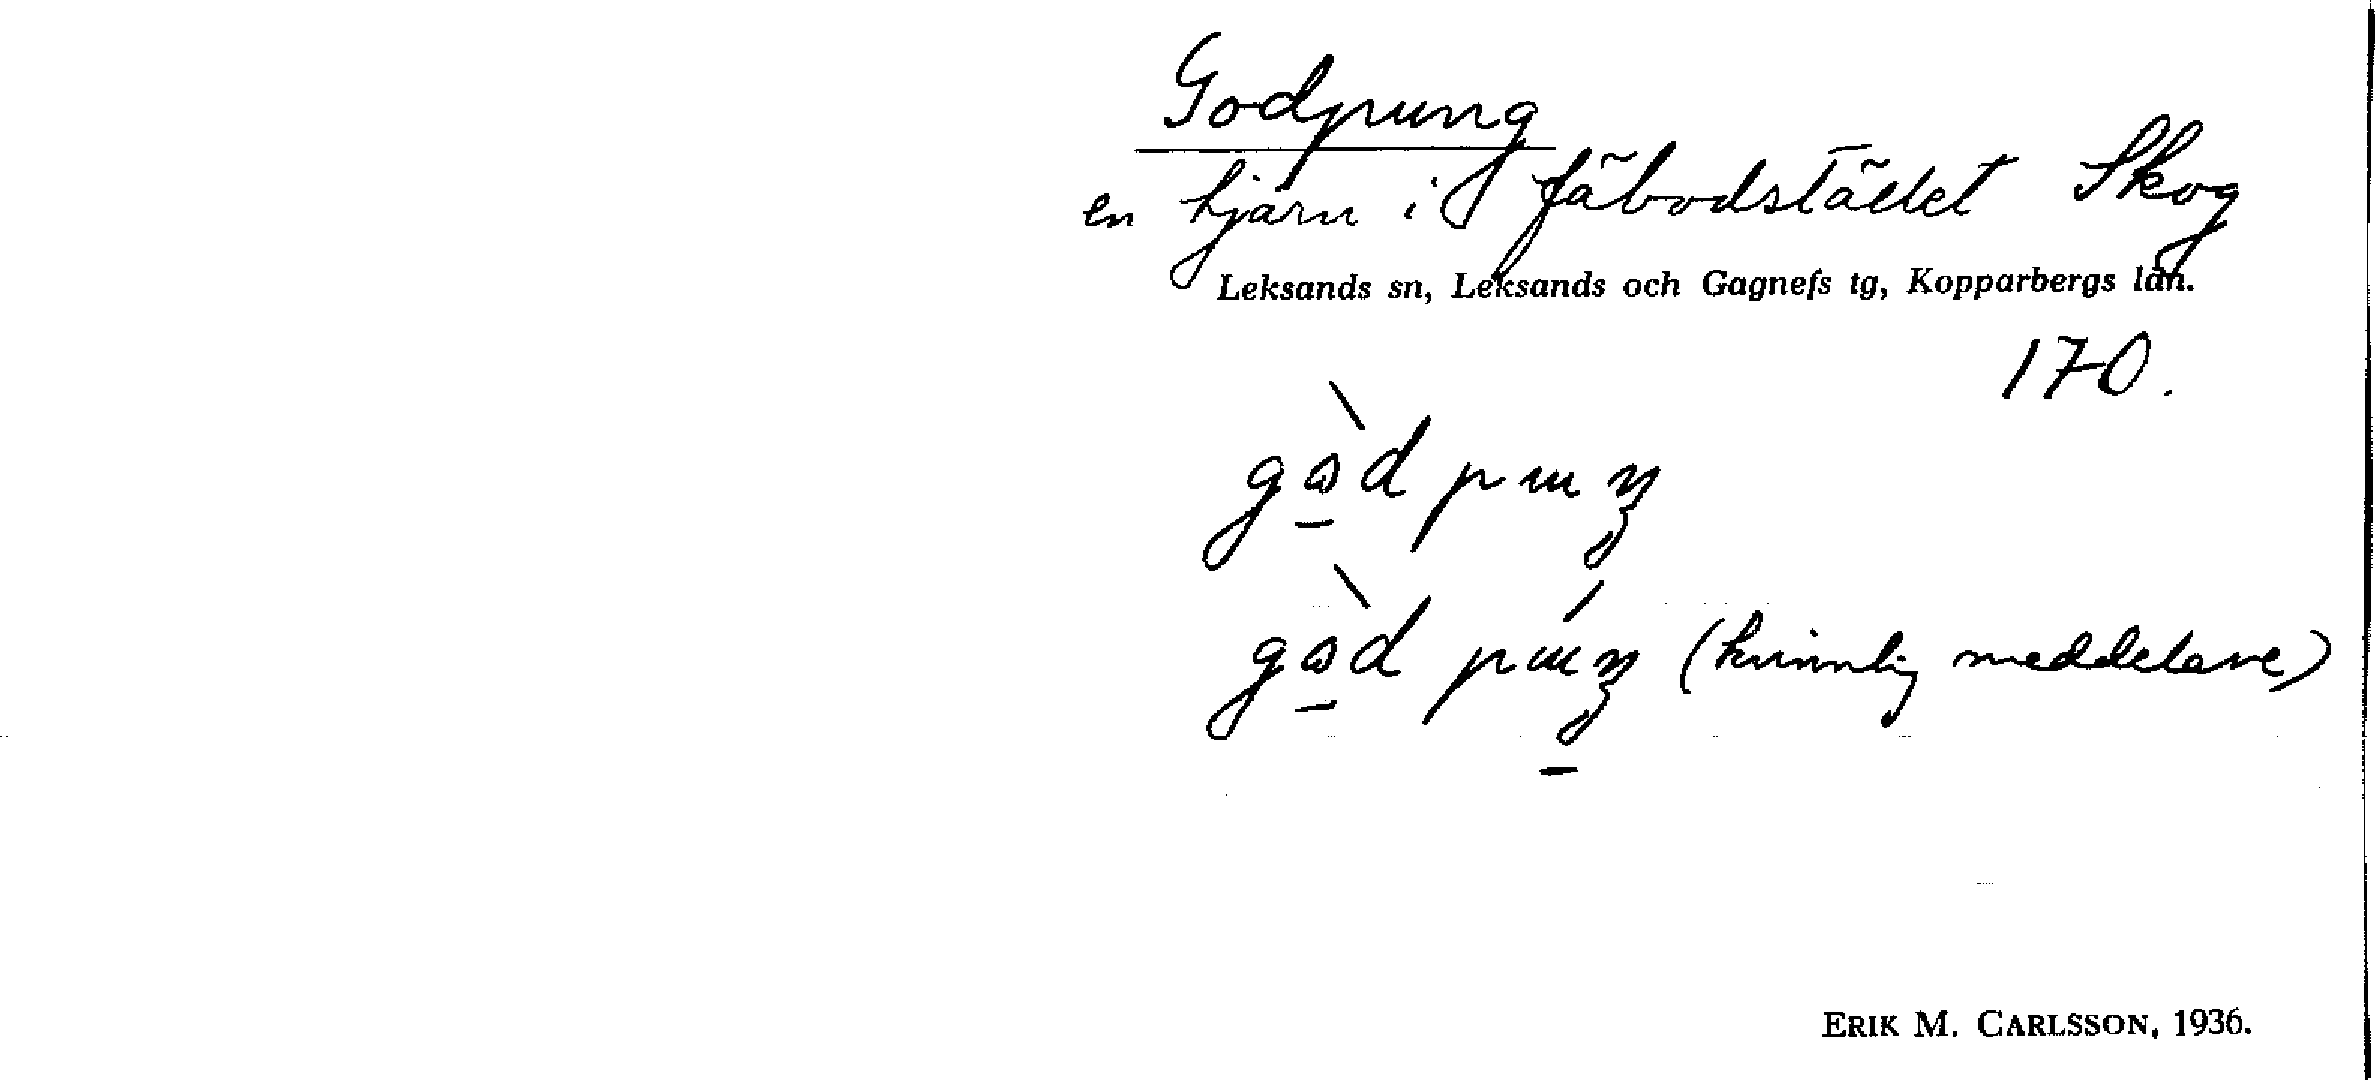 Godpung
en tjärn i fäbodstället Skog
Leksands sn, Leksands och Gagnefs tg, Kopparbergs län.
170.
(kvinnlig meddelare)
ERIK M. CARLSSON, 1936.